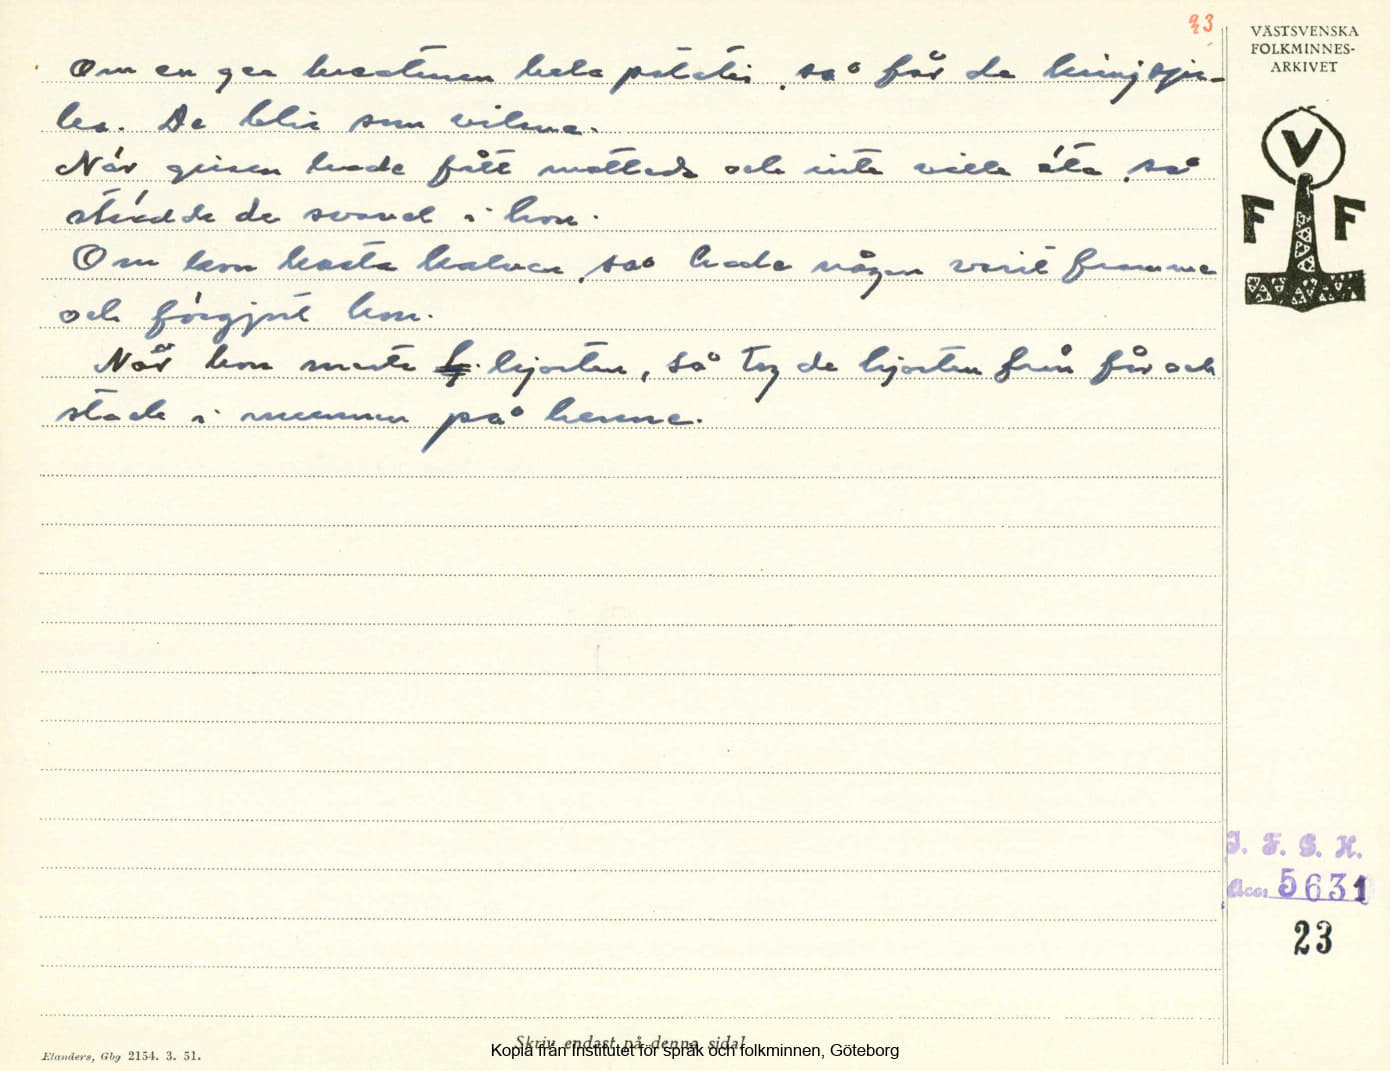 23
VÄSTSVENSKA
FOLKMINNES-
ARKIVET
V
F F
Om en ger kreaturen hela potatis, så får de kringsju-
ka. De blir som vilma.
När grisen hade fått matteds och inte ville äta, så
strödde de svavel i hon.
Om kon kasta kalven, så hade någon varit framme
och förgjort kon.
När kon miste hjorten, så tog de hjorten från får och
stack i munnen på henne.
I. F. G. H.
Acc. 5631
23
Skriv endast på denna sida!
Elanders, Gbg 2154. 3. 51.
Kopia från Institutet för språk och folkminnen, Göteborg